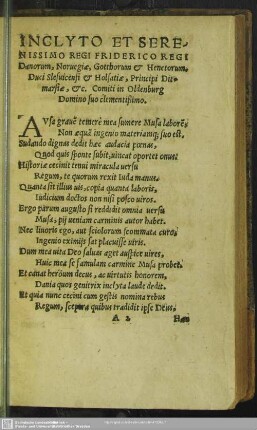 INCLYTO ET SERE-
NISSIMO REGI FRIDERICO REGI
Danorum, Noruegiæ, Gotthorum & Henetorum,
Duci Slesuicensi & Holsatiæ, Principi Dit-
marsiæ, &c. Comiti in Oldenburg
Domino suo clementissimo.
AVsa grauē temerè mea sumere Musa laborē,
Non æquā ingenio materiamq; suo est.
Sudando dignas dedit hæc audacia pœnas,
Quod quis sponte subit, uincat oportet onus.
Historiæ cecinit tenui miracula uersu
Regum, te quorum rexit Iuda manus.
Quanta sit illius uis, copia quanta laboris,
Iudicium doctos non nisi posco uiros.
Ergo parum augusto si reddidit omnia uersu
Musa, pij ueniam carminis autor habet.
Nec liuoris ego, aut sciolorum scommata curo,
Ingenio eximijs sat placuisse uiris.
Dum mea uita Deo saluas aget auspice uires,
Huic mea se famulam carmine Musa probet.
Et canat heroum decus, ac uirtutis honorem,
Dania quos genitrix inclyta laude dedit.
Et quia nunc cecini cum gestis nomina rebus
Regum, sceptra quibus tradidit ipse Deus,
A 2 Hæc